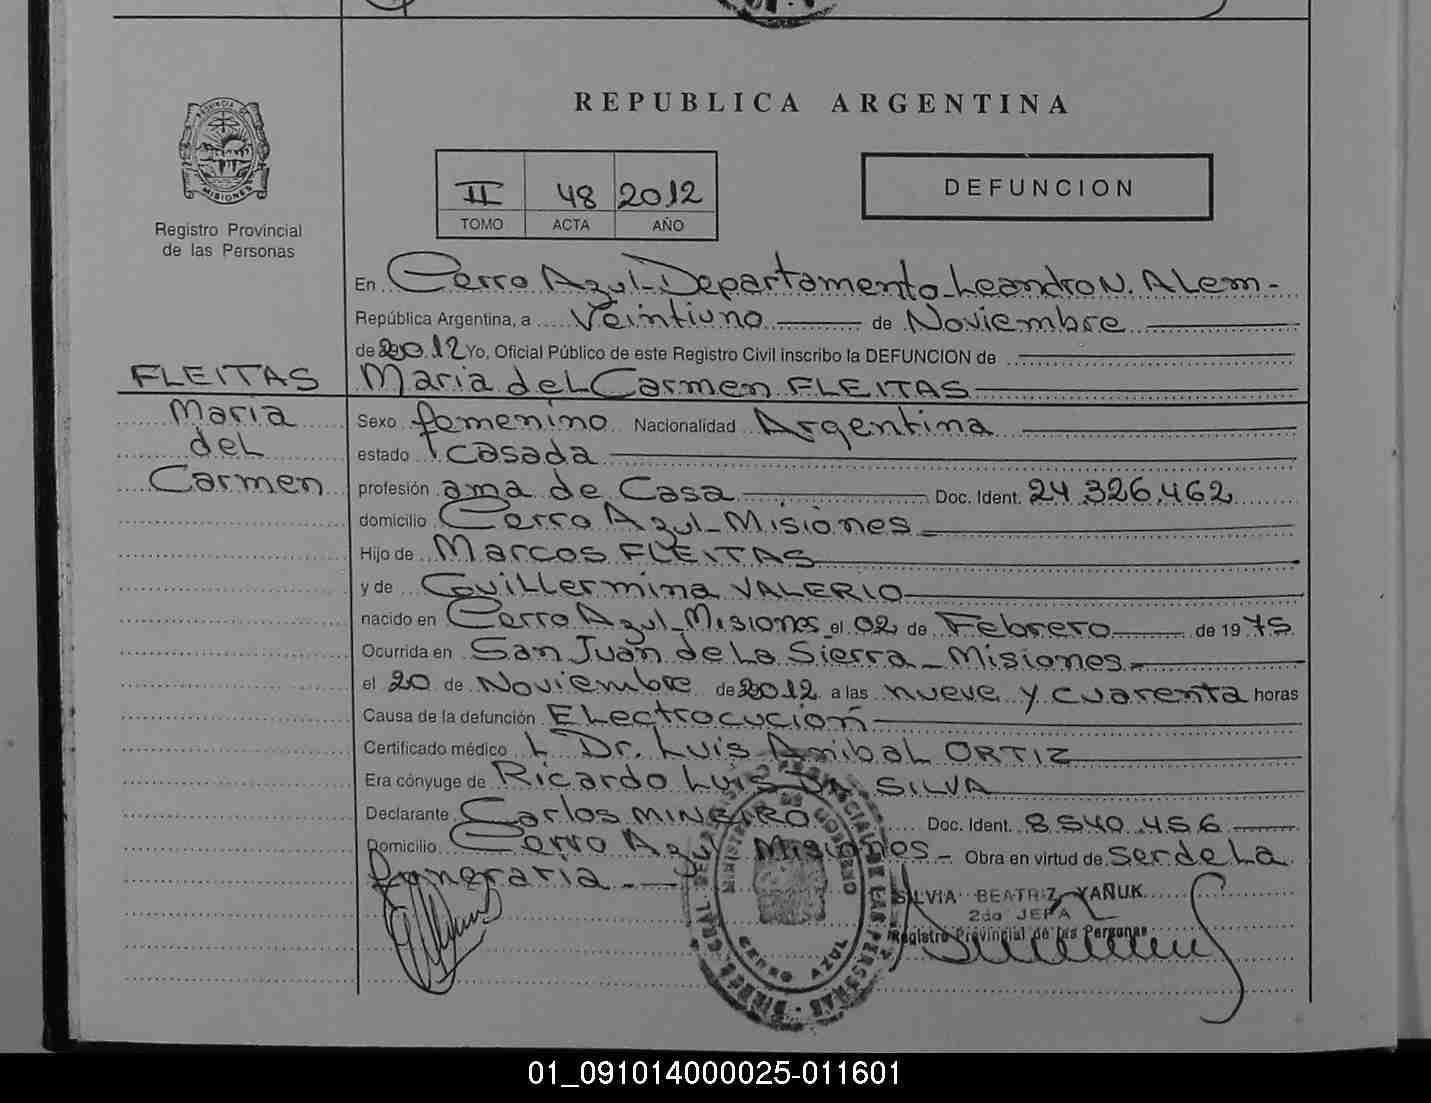 REPUBLICA ARGENTINA
PROVINCIA DE
MISIONES
Registro Provincial
de las Personas
II 48 2012
TOMO ACTA AÑO
DEFUNCION
En Cerro Azul-Departamento Leandro N. Alem-
República Argentina, a Veintiuno de Noviembre
de 2012 Yo, Oficial Público de este Registro Civil inscribo la DEFUNCION de
FLEITAS
Maria del Carmen FLEITAS
Maria
del
Carmen
Sexo femenino Nacionalidad Argentina
estado casada
profesión ama de Casa Doc. Ident. 24.326.462
domicilio Cerro Azul-Misiones
Hijo de Marcos FLEITAS
y de Guillermina VALERIO
nacido en Cerro Azul-Misiones el 02 de Febrero de 1975
Ocurrida en San Juan de La Sierra-Misiones-
el 20 de Noviembre de 2012 a las nueve y cuarenta horas
Causa de la defunción Electrocución
Certificado médico L Dr. Luis Anibal ORTIZ
Era cónyuge de Ricardo Luis DA SILVA
Declarante Carlos MINEIRO Doc. Ident. 8.540.456
Domicilio Cerro Azul Misiones- Obra en virtud de ser de La
funeraria-
SILVIA BEATRIZ YAÑUK
2da JEFA
Registro Provincial de las Personas
MINISTERIO DE GOBIERNO
CERRO AZUL
01_091014000025-011601